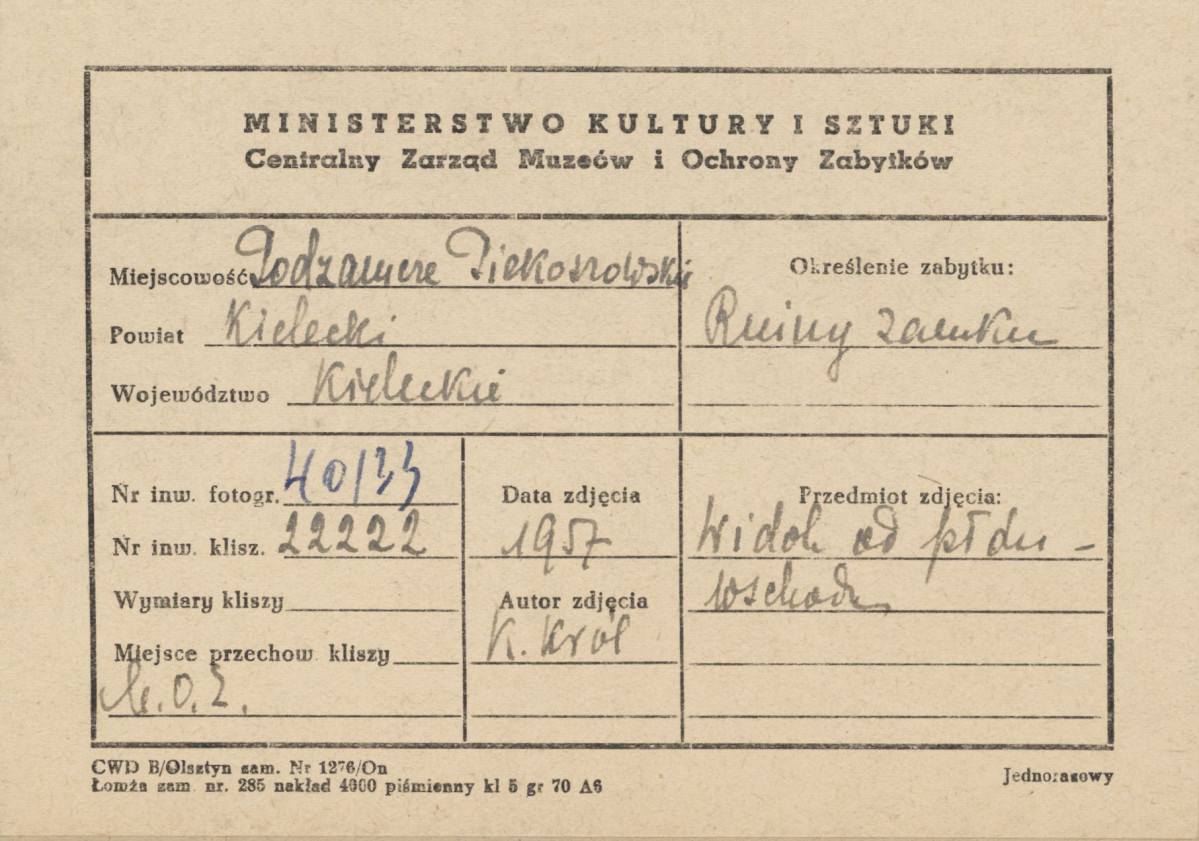 MINISTERSTWO KULTURY I SZTUKI
Centralny Zarząd Muzeów i Ochrony Zabytków
Miejscowość Podzamcze Piekoszowskie
Powiat Kielecki
Województwo Kieleckie
Określenie zabytku:
Ruiny zamku
Nr inw. fotogr. 40/33
Nr inw. klisz. 22222
Wymiary kliszy
Miejsce przechow. kliszy
Data zdjęcia
1957
Autor zdjęcia
K. Król
Przedmiot zdjęcia:
Widok od płdn -
wschodu
CWD B/Olsztyn zam. Nr 1276/On
Łomża zam. nr. 285 nakład 4000 piśmienny kl 5 gr 70 A6
Jednorazowy